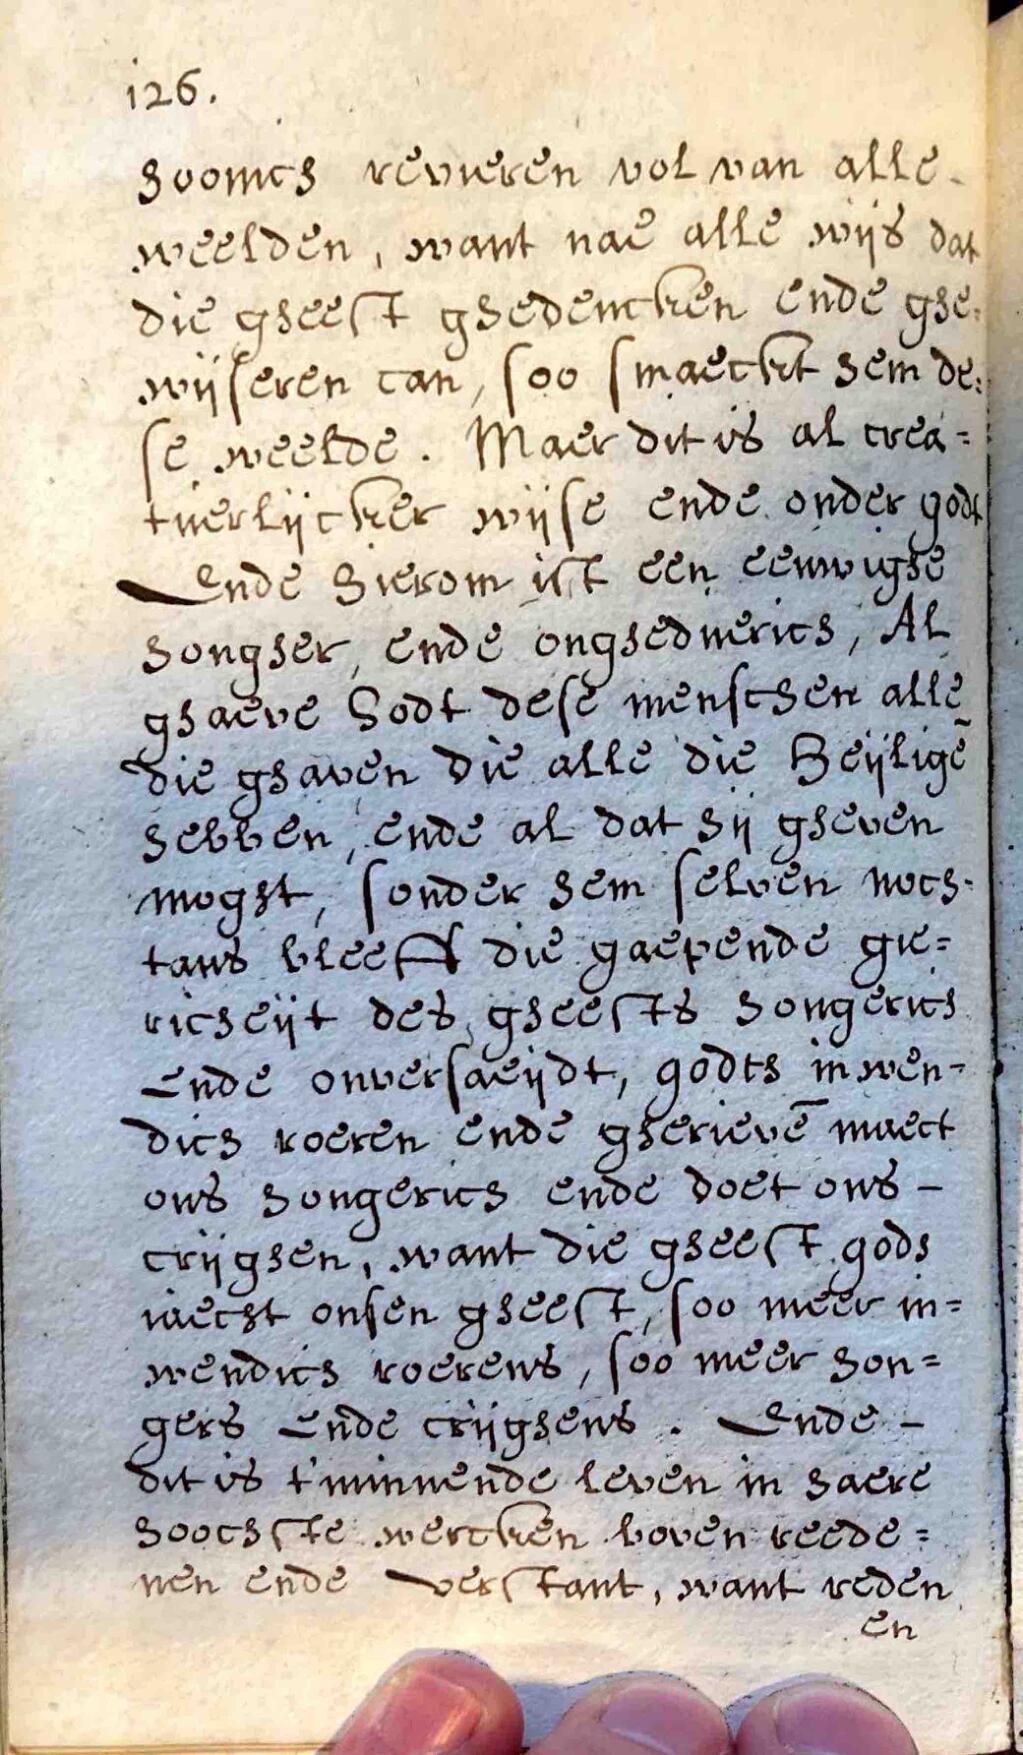 126.
honich revieren vol van alle
weelden, want nae alle wijs dat
die gheest ghedencken ende ghe=
wijseren can, soo smaeckt hem de=
se weelde. Maer dit is al crea=
tuerlijcker wijse ende onder godt
Ende hierom ist een eeuwighe
hongher, ende ongheduerich, Al
ghaeve Godt dese menschen alle
die ghaven die alle die Heijligē
hebben, ende al dat hij gheven
moght, sonder hem selven noch-
tans bleeff die gaepende gie=
richeijt des gheests hongerich
Ende onversaeijdt, godts inwen-
dich roeren ende gherievē maect
ons hongerich ende doet ons -
crijghen, want die gheest gods
iaecht onsen gheest, soo meer in=
wendich roerens, soo meer hon=
gers Ende crijghens. Ende -
dit is t'minnende leven in haere
hoochste wercken boven reede=
nen ende verstant, want reden
en